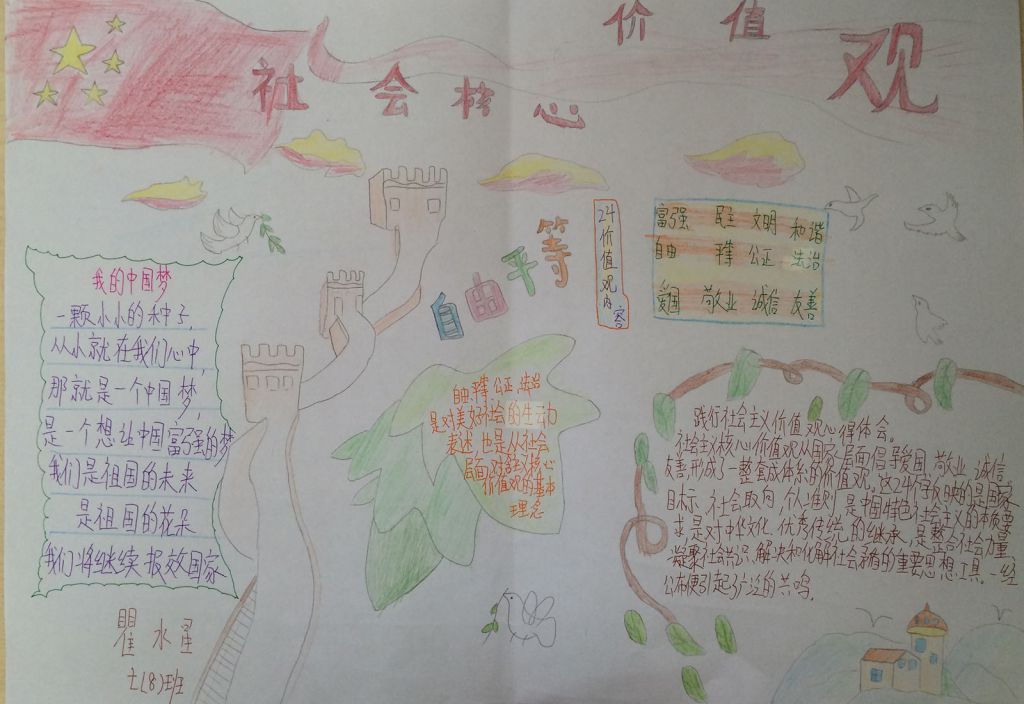 社会核心
价值
观
我的中国梦
一颗小小的种子,
从小就在我们心中,
那就是一个中国梦,
是一个想让中国富强的梦
我们是祖国的未来
是祖国的花朵
我们将继续报效国家
瞿水星
七(8)班
自由平等
24价值观内容
富强 民主 文明 和谐
自由 平等 公正 法治
爱国 敬业 诚信 友善
自由、平等、公正、法治
是对美好社会的生动
表述,也是从社会
层面对社会主义核心
价值观的基本
理念
践行社会主义价值观心得体会。
社会主义核心价值观从国家层面倡导爱国、敬业、诚信、
友善,形成了一整套成体系的价值观,这24个字反映的是国家
目标、社会取向、个人准则,是中国特色社会主义的本质要
求,是对中华文化优秀传统的继承,是整合社会力量、
凝聚社会共识、解决和化解社会矛盾的重要思想工具。一经
公布便引起了广泛的共鸣。